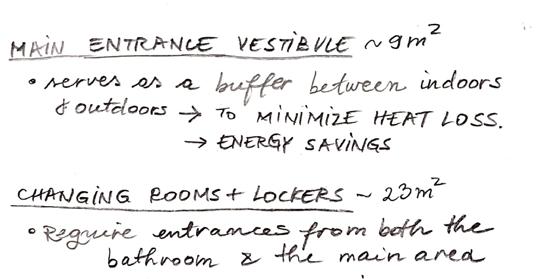 MAIN ENTRANCE VESTIBULE ~9m²
• serves as a buffer between indoors
& outdoors → TO MINIMIZE HEAT LOSS.
→ ENERGY SAVINGS
CHANGING ROOMS + LOCKERS ~ 23m²
• Require entrances from both the
bathroom & the main area